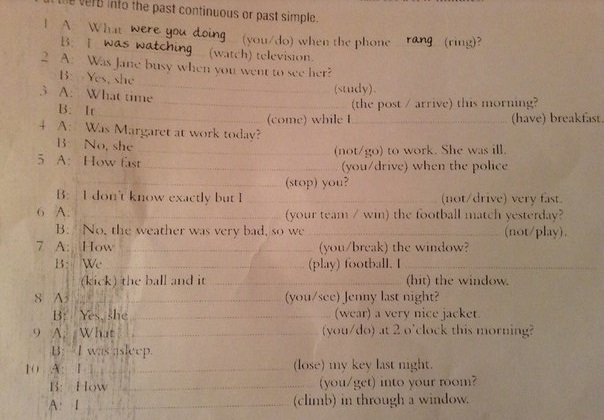 the verb into the past continuous or past simple.
1 A: What were you doing (you/do) when the phone rang (ring)?
B: I was watching (watch) television.
2 A: Was Jane busy when you went to see her?
B: Yes, she (study).
3 A: What time (the post / arrive) this morning?
B: It (come) while I (have) breakfast.
4 A: Was Margaret at work today?
B: No, she (not/go) to work. She was ill.
5 A: How fast (you/drive) when the police
(stop) you?
B: I don't know exactly but I (not/drive) very fast.
6 A: (your team / win) the football match yesterday?
B: No, the weather was very bad, so we (not/play).
7 A: How (you/break) the window?
B: We (play) football. I
(kick) the ball and it (hit) the window.
8 A: (you/see) Jenny last night?
B: Yes, she (wear) a very nice jacket.
9 A: What (you/do) at 2 o'clock this morning?
B: I was asleep.
10 A: I (lose) my key last night.
B: How (you/get) into your room?
A: I (climb) in through a window.